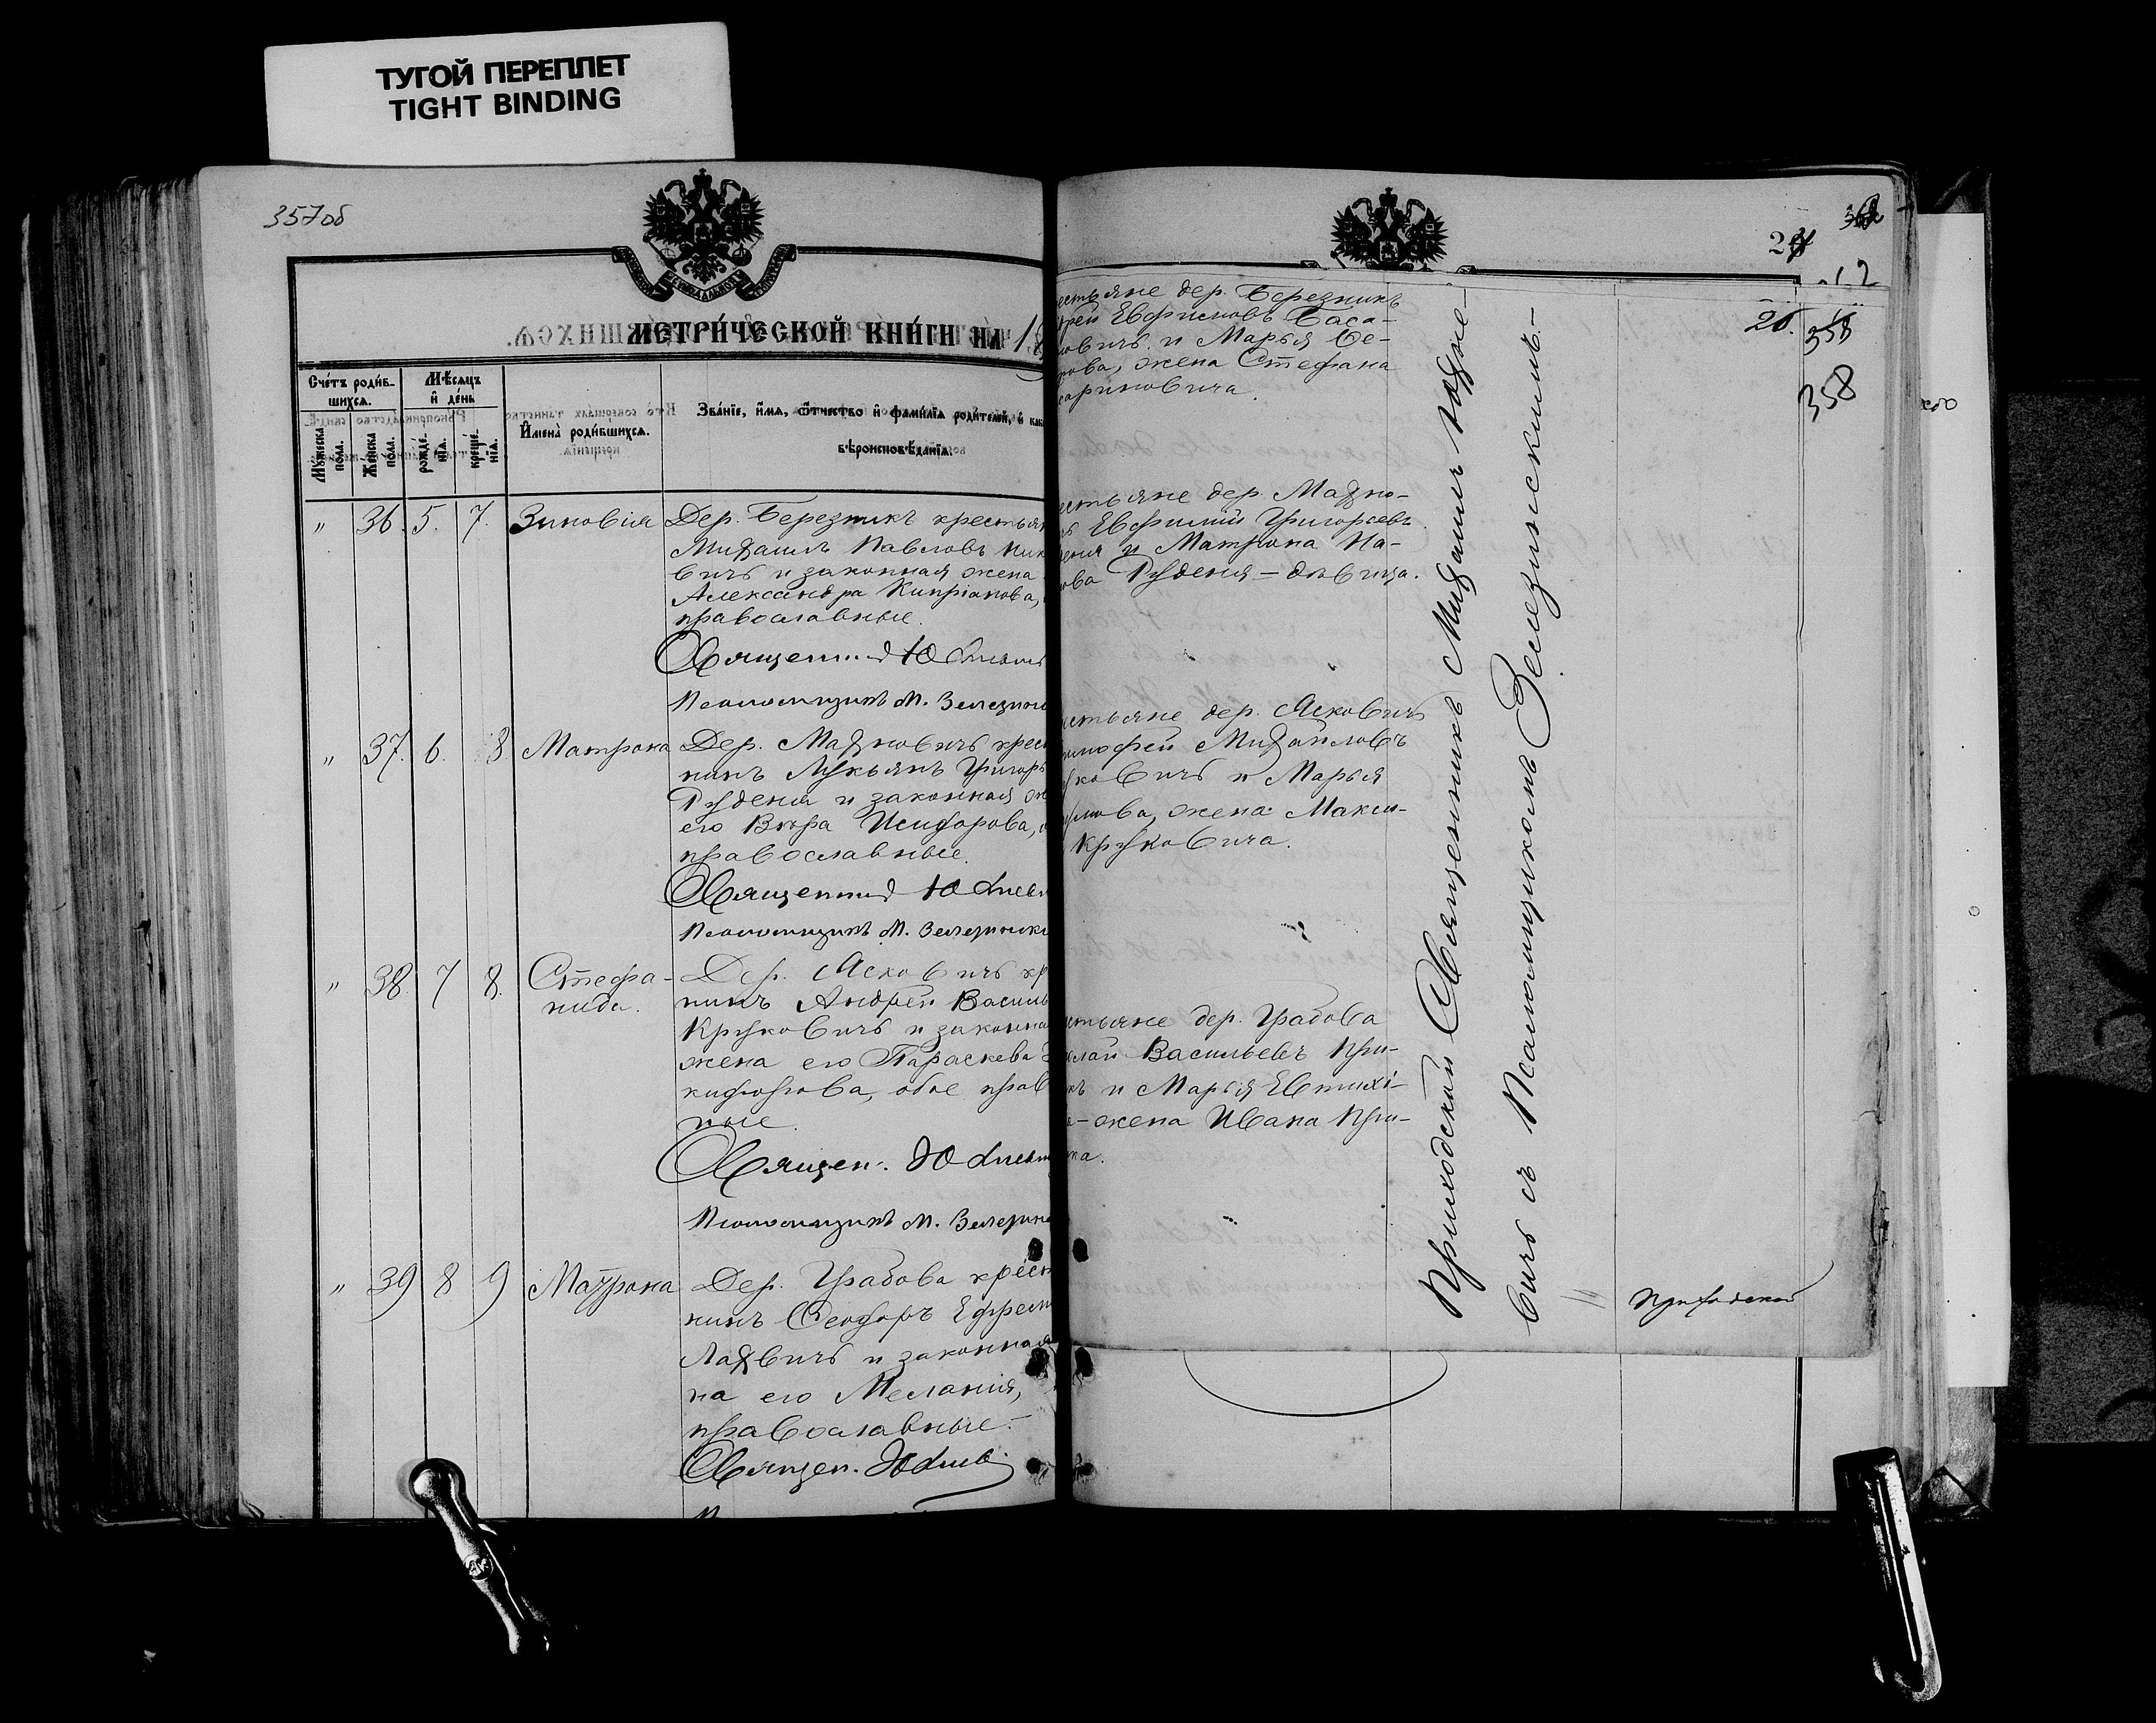 ТУГОЙ ПЕРЕПЛЕТ
TIGHT BINDING
357об
МЕТРИ́ЧЕСКОЙ КНИ́ГИ НА 18
Сче́тъ роди́в-
шихся.
Мѣсяцъ
и де́нь
Му́жеска
по́ла.
Же́нска
по́ла.
рожде́-
нїѧ.
креще́-
нїѧ.
Имена̀ роди́вшихся.
Зва́нїе, и́мѧ, ѻ́тчество и фами́лїѧ роди́телей, и как
вѣроисповѣ́данїѧ.
" 36. 5. 7. Зиновія
Дер. Березникъ крестьян
Михаилъ Павловъ Ник
вичъ и законная жена
Александра Кипріанова,
православные.
Священник Ю
Псаломщикъ М. Зелезинс
" 37. 6. 8. Матрона
Дер. Махновичъ крест
нинъ Лукьянъ Григорь
Руденя и законная ж
его Вѣра Исидорова, о
православные.
Священник Ю
Псаломщикъ М. Зелезински
" 38. 7 8. Стефа-
нида.
Дер. Ясковичъ кр
нинъ Андрей Василь
Круковичъ и законна
жена его Параскева
кифорова, обое прав
ные.
Священ. Ю
Псаломщикъ М. Зелезинс
" 39 8 9 Матрона
Дер. Грабова крест
нинъ Ѳеодоръ Ефрем
Лахвичъ и законная
на его Меланія,
православные.
Священ. Ю
358
358
26.
естьяне дер. Березникъ
рей Евфимовъ Баса-
новичъ и Марья Се-
рова, жена Стефана
сариновича.
естьяне дер. Махно-
ъ Евфимій Григорьевъ
деня и Матрона Па-
ова Руденя – дѣвица.
естьяне дер. Ясковичъ
имофей Михайловъ
уковичъ и Марья
умова, жена Макси-
Круковича.
естьяне дер. Грабова
олай Васильевъ При-
къ и Марія Евтихі-
а – жена Ивана При-
ка.
Приходскій Священникъ Михаилъ Юдне-
вичъ съ Псаломщикомъ Зелезинскимъ. –
" Приходской